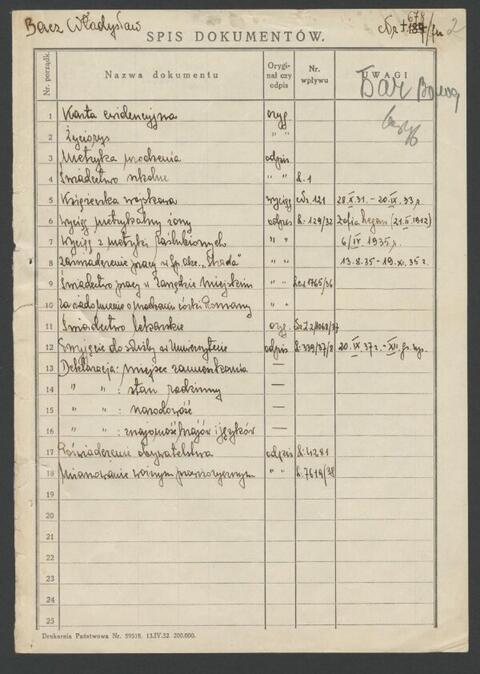 Barcz Władysław
SPIS DOKUMENTÓW.
Nr. porządk.
Nazwa dokumentu
Orygi-
nał czy
odpis
Nr.
wpływu
UWAGI
1 Karta ewidencyjna oryg.
2 Życiorys " "
3 Metryka urodzenia odpis
4 Świadectwo szkolne " " L. 1
5 Książeczka wojskowa wyciąg 121 28.X.31. – 20.IX.33 r.
6 Wyciąg metrykalny żony odpis L. 129/32 Zofia (21.II.1912)
7 Wyciąg z metryki zaślubionych " " 6/IV 1935 r.
8 Zaświadczenie pracy w Sp. akc. 13.8.35 - 19.XI.35 r.
9 Świadectwo pracy w Zarządzie Miejskim 1765/36
10 Zawiadomienie o urodzeniu córki Romany " "
11 Świadectwo lekarskie oryg.
12 Przyjęcie do służby w Uniwersytecie odpis L. 339/37/8 20.IX.37 r. - XII.
13 Deklaracja: miejsce zamieszkania —
14 " " : stan rodzinny —
15 " " : narodowość —
16 " " : znajomość krajów i języków —
17 Poświadczenie obywatelstwa odpis L. 4281
18 Mianowanie woźnym prowizorycznym " " L. 7619/38
19
20
21
22
23
24
25
Drukarnia Państwowa Nr. 59518. 13.IV.32. 200.000.